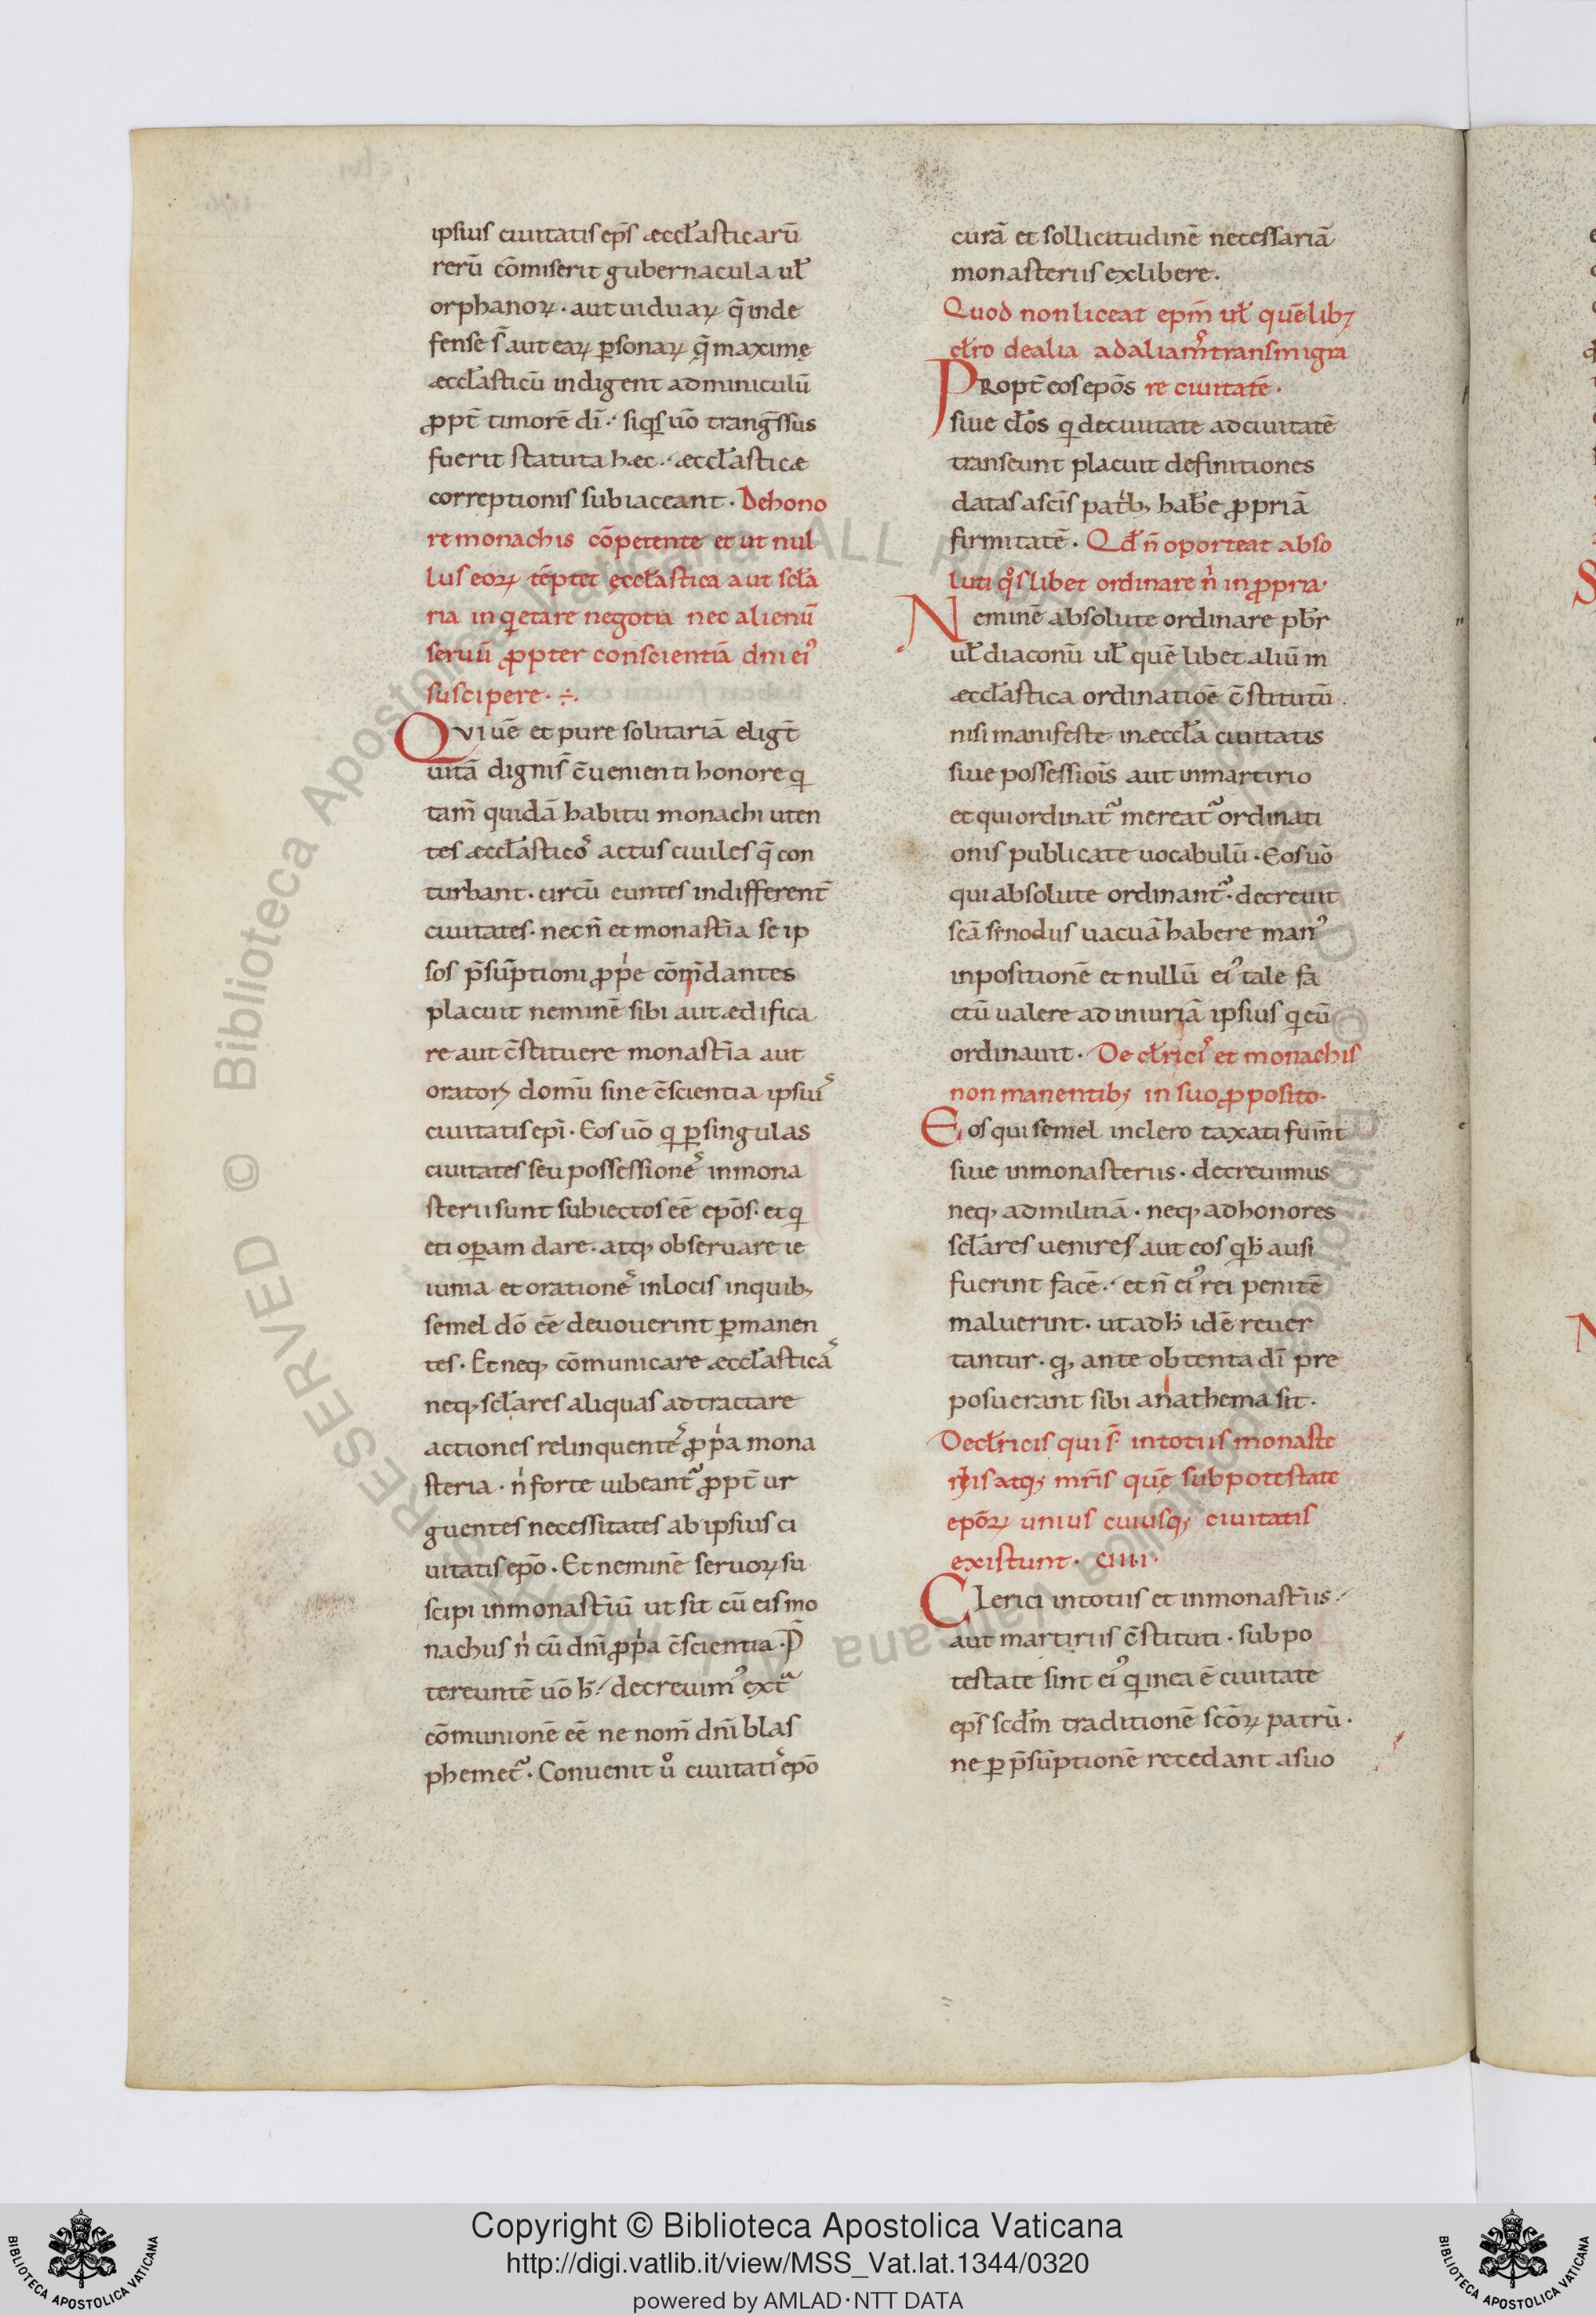 ipsius ciuitatis ep̄s æccłasticarū
rerū cōmiserit gubernacula uł
orphanoꝝ · aut uiduaꝝ q̄ inde
fense s̄ aut eaꝝ ꝑsonaꝝ q̄ maximę
æccłasticū indigent adminiculū
ꝓpt̄ timorē dī · siqͥs uō tranḡssus
fuerit statuta hæc · æccłasticæ
correptionis subiaceant · De hono
re monachis cōpetente et ut nul
lus eoꝝ tēptet ęccłastica aut scła
ria inqͥetare negotia nec alienū
seruū ꝓpter conscientiā dni eiꝰ
suscipere · ÷ ·
Qvi uē et pure solitariā eligt̄
uitā dignis c̄uenienti honore qͥ
tam̄ quidā habitu monachi uten
tes æccłasticos actus ciuiles q̄ con
turbant · circū euntes indifferent̄
ciuitates · nec n̄ et monast̄ia se ip
sos p̄sūptioni ꝓpͥe cōm̄dantes
placuit neminē sibi aut ædifica
re aut c̄stituere monast̄ia aut
oratoꝝ domū sine c̄scientia ipsius
ciuitatis ep̄i · Eos uō qͥ ꝑ singulas
ciuitates seu possessiones in mona
sterii sunt subiectos eē ep̄os · et qͥ
eti oꝑam dare · atq; obseruare ie
iunia et orationes in locis in quib;
semel dō eē deuouerint ꝑmanen
tes · Et neq; cōmunicare æccłasticas
neq; scłares aliquas adtractare
actiones relinquentes ꝓpͥa mona
steria · nͥ forte iubeantᷣ ꝓpt̄ ur
guentes necessitates ab ipsius ci
uitatis ep̄o · Et neminē seruoꝝ su
scipi in monast̄iū ut sit cū eis mo
nachus nͥ cū dnī ꝓpͥa c̄scientia · P̄
tereuntē uō ħ · decreuimꝰ extᵃ
cōmunionē eē ne nom̄ dnī blas
phemetᷣ · Conuenit uͦ ciuitatis ep̄o
curā et sollicitudinē necessariā
monasteriis exlibere ·
Quod non liceat ep̄m uł quēlib;
cłro de alia ad aliam transmigra
Propt̄ eos ep̄os re ciuitatē ·
siue cłos qͥ de ciuitate ad ciuitatē
transeunt placuit definitiones
datas a sc̄is patͥb; hab̄e ꝓpriā
firmitatē · Qd̄ n̄ oporteat abso
luti qͦslibet ordinare nͥ in ꝓpria ·
Neminē absolute ordinare pƀr
uł diaconū uł quē libet aliū in
æccłastica ordinatiōe c̄stitutū ·
nisi manifeste in æccła ciuitatis
siue possessiōis aut in martirio
et qui ordinatᷣ mereatᷣ ordinati
onis publicate uocabulū · Eos uō
qui absolute ordinantᷣ · decreuit
scā sinodus uacuā habere manꝰ
inpositionē et nullū eiꝰ tale fa
ctū ualere ad iniuriā ipsius qͥ eū
ordinauit · De cłricis et monachis
non manentib; in suo ꝓposito ·
Eos qui semel in clero taxati fuīnt
siue in monasteriis · decreuimus
neq; ad militiā · neq; ad honores
scłares uenires aut eos qͥ ħ ausi
fuerint facē · et n̄ eiꝰ rei penitē
maluerint · ut ad ħ idē reuer
tantur · qͥ; ante obtenta dī pre
posuerant sibi anathema sit ·
De cłricis qui s̄ in totiis monaste
riis atq; mr̄is quę sub potestate
ep̄oꝝ unius cuiusq; ciuitatis
existunt · ciiii ·
Clerici in totiis et in monast̄iis
aut martiriis c̄stituti · sub po
testate sint eiꝰ qͥ in ea ē ciuitate
ep̄s scdm̄ traditionē scōꝝ patrū ·
ne ꝑ p̄sūptionē recedant a suo
Copyright © Biblioteca Apostolica Vaticana
http://digi.vatlib.it/view/MSS_Vat.lat.1344/0320
powered by AMLAD·NTT DATA